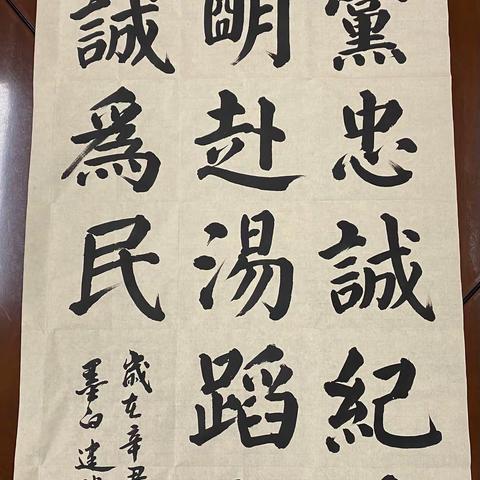 黨忠誠紀
明赴湯蹈
誠爲民
歲在辛丑
墨白建